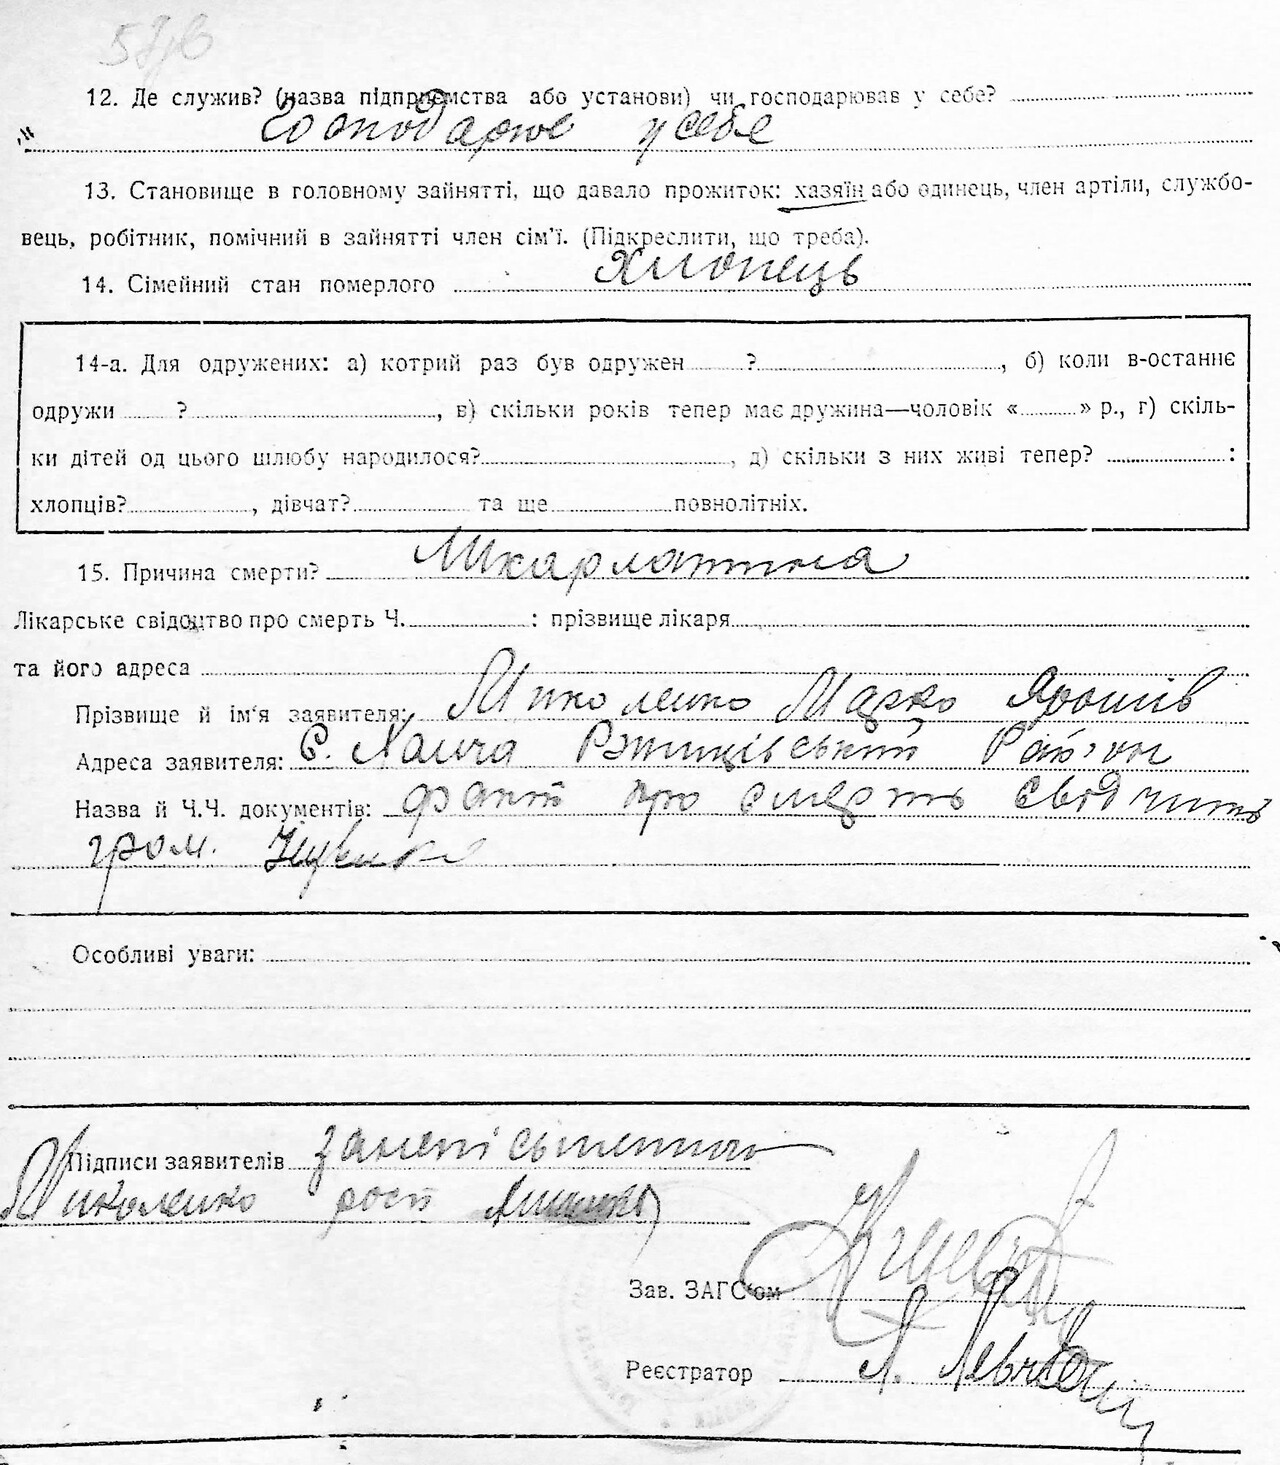 12. Де служив? (назва підприємства або установи) чи господарював у себе?
„ Господарює у себе
13. Становище в головному зайнятті, що давало прожиток: хазяїн або одинець, член артіли, службо-
вець, робітник, помічний в зайнятті член сім'ї. (Підкреслити, що треба).
14. Сімейний стан померлого Хлопець
14-а. Для одружених: а) котрий раз був одружен ?, б) коли в-останнє
одружи ?, в) скільки років тепер має дружина—чоловік « » р., г) скіль-
ки дітей од цього шлюбу народилося?, д) скільки з них живі тепер? :
хлопців?, дівчат? та ще повнолітніх.
15. Причина смерти? Шкарлатина
Лікарське свідоцтво про смерть Ч. : прізвище лікаря
та його адреса
Прізвище й ім'я заявителя: Миколенко Марко
Адреса заявителя: С. Ржищівський Рай'он
Назва й Ч.Ч. документів: факт про смерть свідчить
гром.
Особливі уваги:
Підписи заявителів
Миколенко
Зав. ЗАГС'ом
Реєстратор Л.